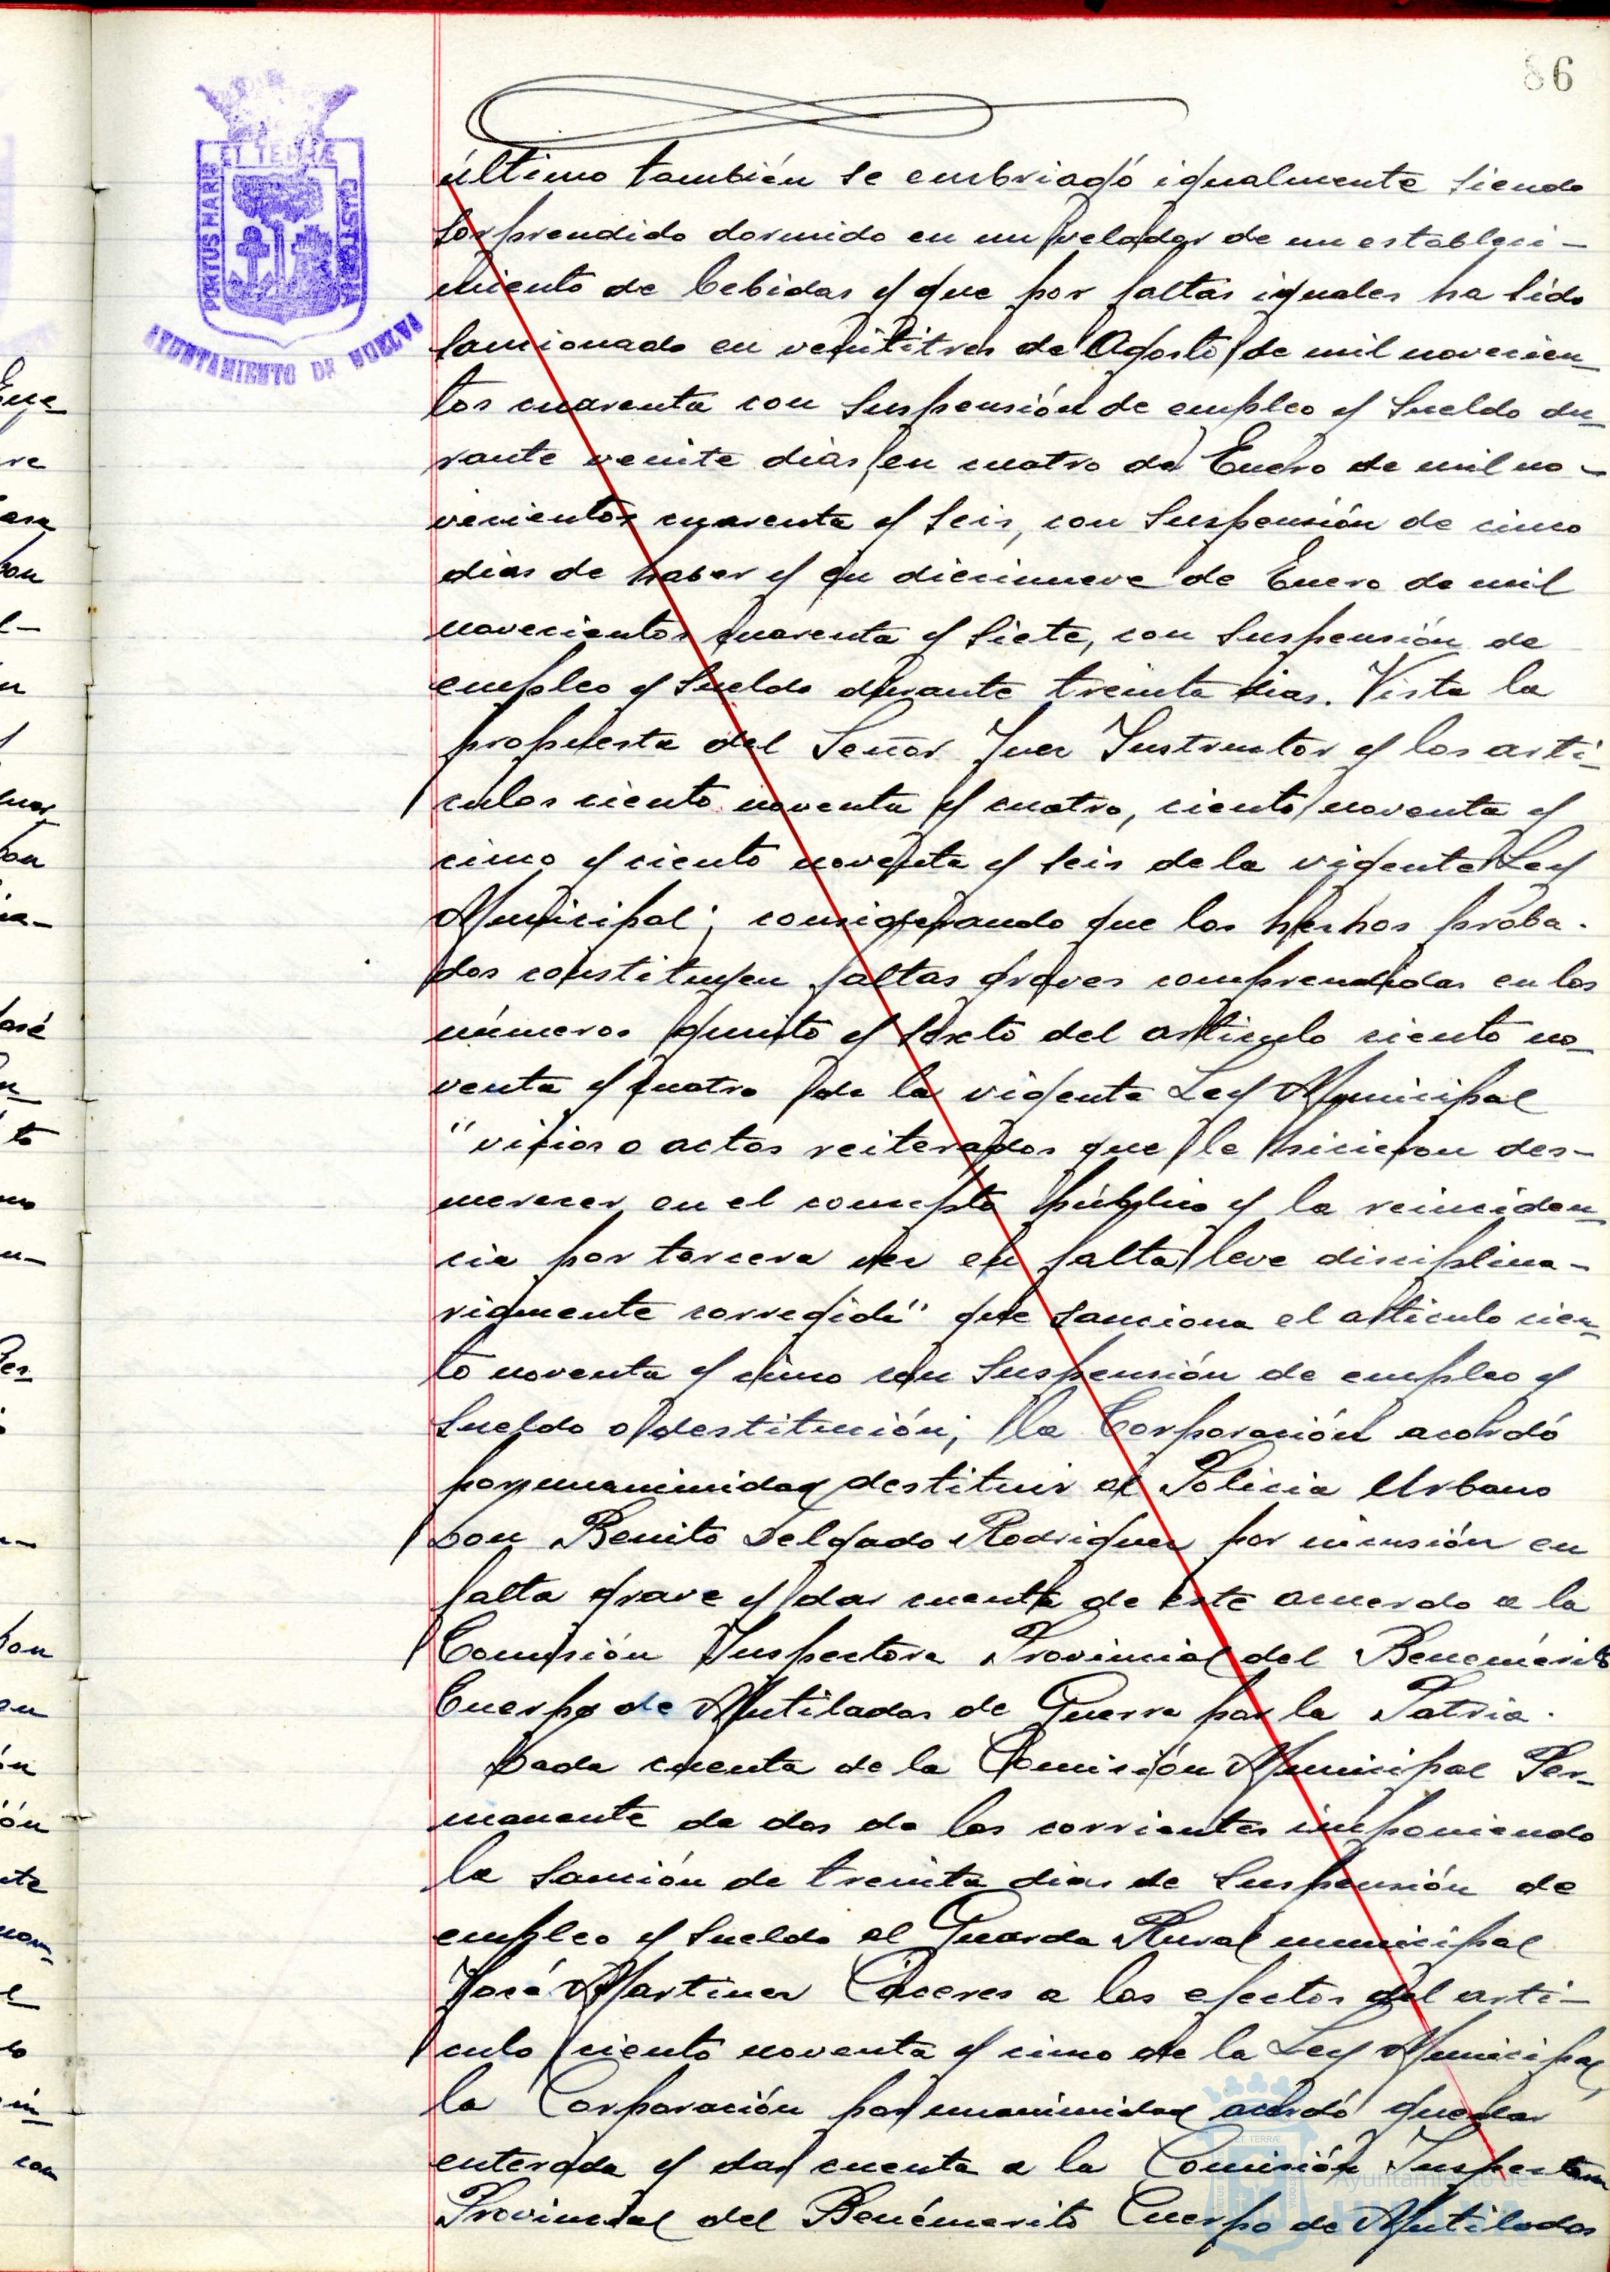 86
PORTUS MARIS
ET TERRÆ
CUSTODIA
AYUNTAMIENTO DE HUELVA
último también se embriagó igualmente siendo
sorprendido dormido en un velador de un estableci-
miento de bebidas y que por faltas iguales ha sido
sancionado en veintitres de Agosto de mil novecien-
tos cuarenta con suspensión de empleo y sueldo du-
rante veinte dias, en cuatro de Enero de mil no-
vecientos cuarenta y seis, con suspensión de cinco
dias de haber y en diecinueve de Enero de mil
novecientos cuarenta y siete, con suspensión de
empleo y sueldo durante treinta dias. Vista la
propuesta del Señor Juez Instructor y los arti-
culos ciento noventa y cuatro, ciento noventa y
cinco y ciento noventa y seis de la vigente Ley
Municipal; considerando que los hechos proba-
dos constituyen faltas graves comprendidas en los
números quinto y sexto del articulo ciento no-
venta y cuatro de la vigente Ley Municipal
"vicios o actos reiterados que le hicieron des-
merecer en el concepto público y la reinciden-
cia por tercera vez en falta leve disciplina-
riamente corregida" que sanciona el articulo cien-
to noventa y cinco con suspensión de empleo y
sueldo o destitución; la Corporación acordó
por unanimidad destituir al Policia Urbano
Don Benito Delgado Rodriguez por incursión en
falta grave y dar cuenta de este acuerdo a la
Comisión Inspectora Provincial del Benemérito
Cuerpo de Mutilados de Guerra por la Patria.
Dada cuenta de la Comisión Municipal Per-
manente de dos de los corrientes imponiendo
la sanción de treinta dias de suspensión de
empleo y sueldo al Guarda Rural municipal
José Martinez Cáceres a los efectos del arti-
culo ciento noventa y cinco de la Ley Municipal,
la Corporación por unanimidad acordó quedar
enterada y dar cuenta a la Comisión Inspectora
Provincial del Benémerito Cuerpo de Mutilados
Ayuntamiento de
HUELVA